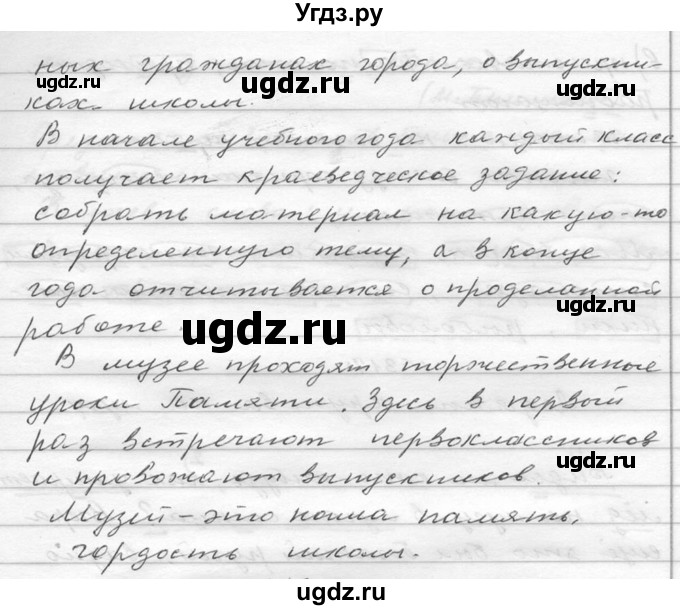 Угдз.ру
ных гражданах города, о выпускни-
ках школы.
В начале учебного года каждый класс
получает краеведческое задание:
собрать материал на какую-то
определенную тему, а в конце
года отчитывается о проделанной
работе.
В музее проходят торжественные
уроки Памяти. Здесь в первый
раз встречают первоклассников
и провожают выпускников.
Музей – это наша память,
гордость школы.
ugdz.ru
ugdz.ru
ugdz.ru
ugdz.ru
ugdz.ru
ugdz.ru
ugdz.ru
ugdz.ru
ugdz.ru
ugdz.ru